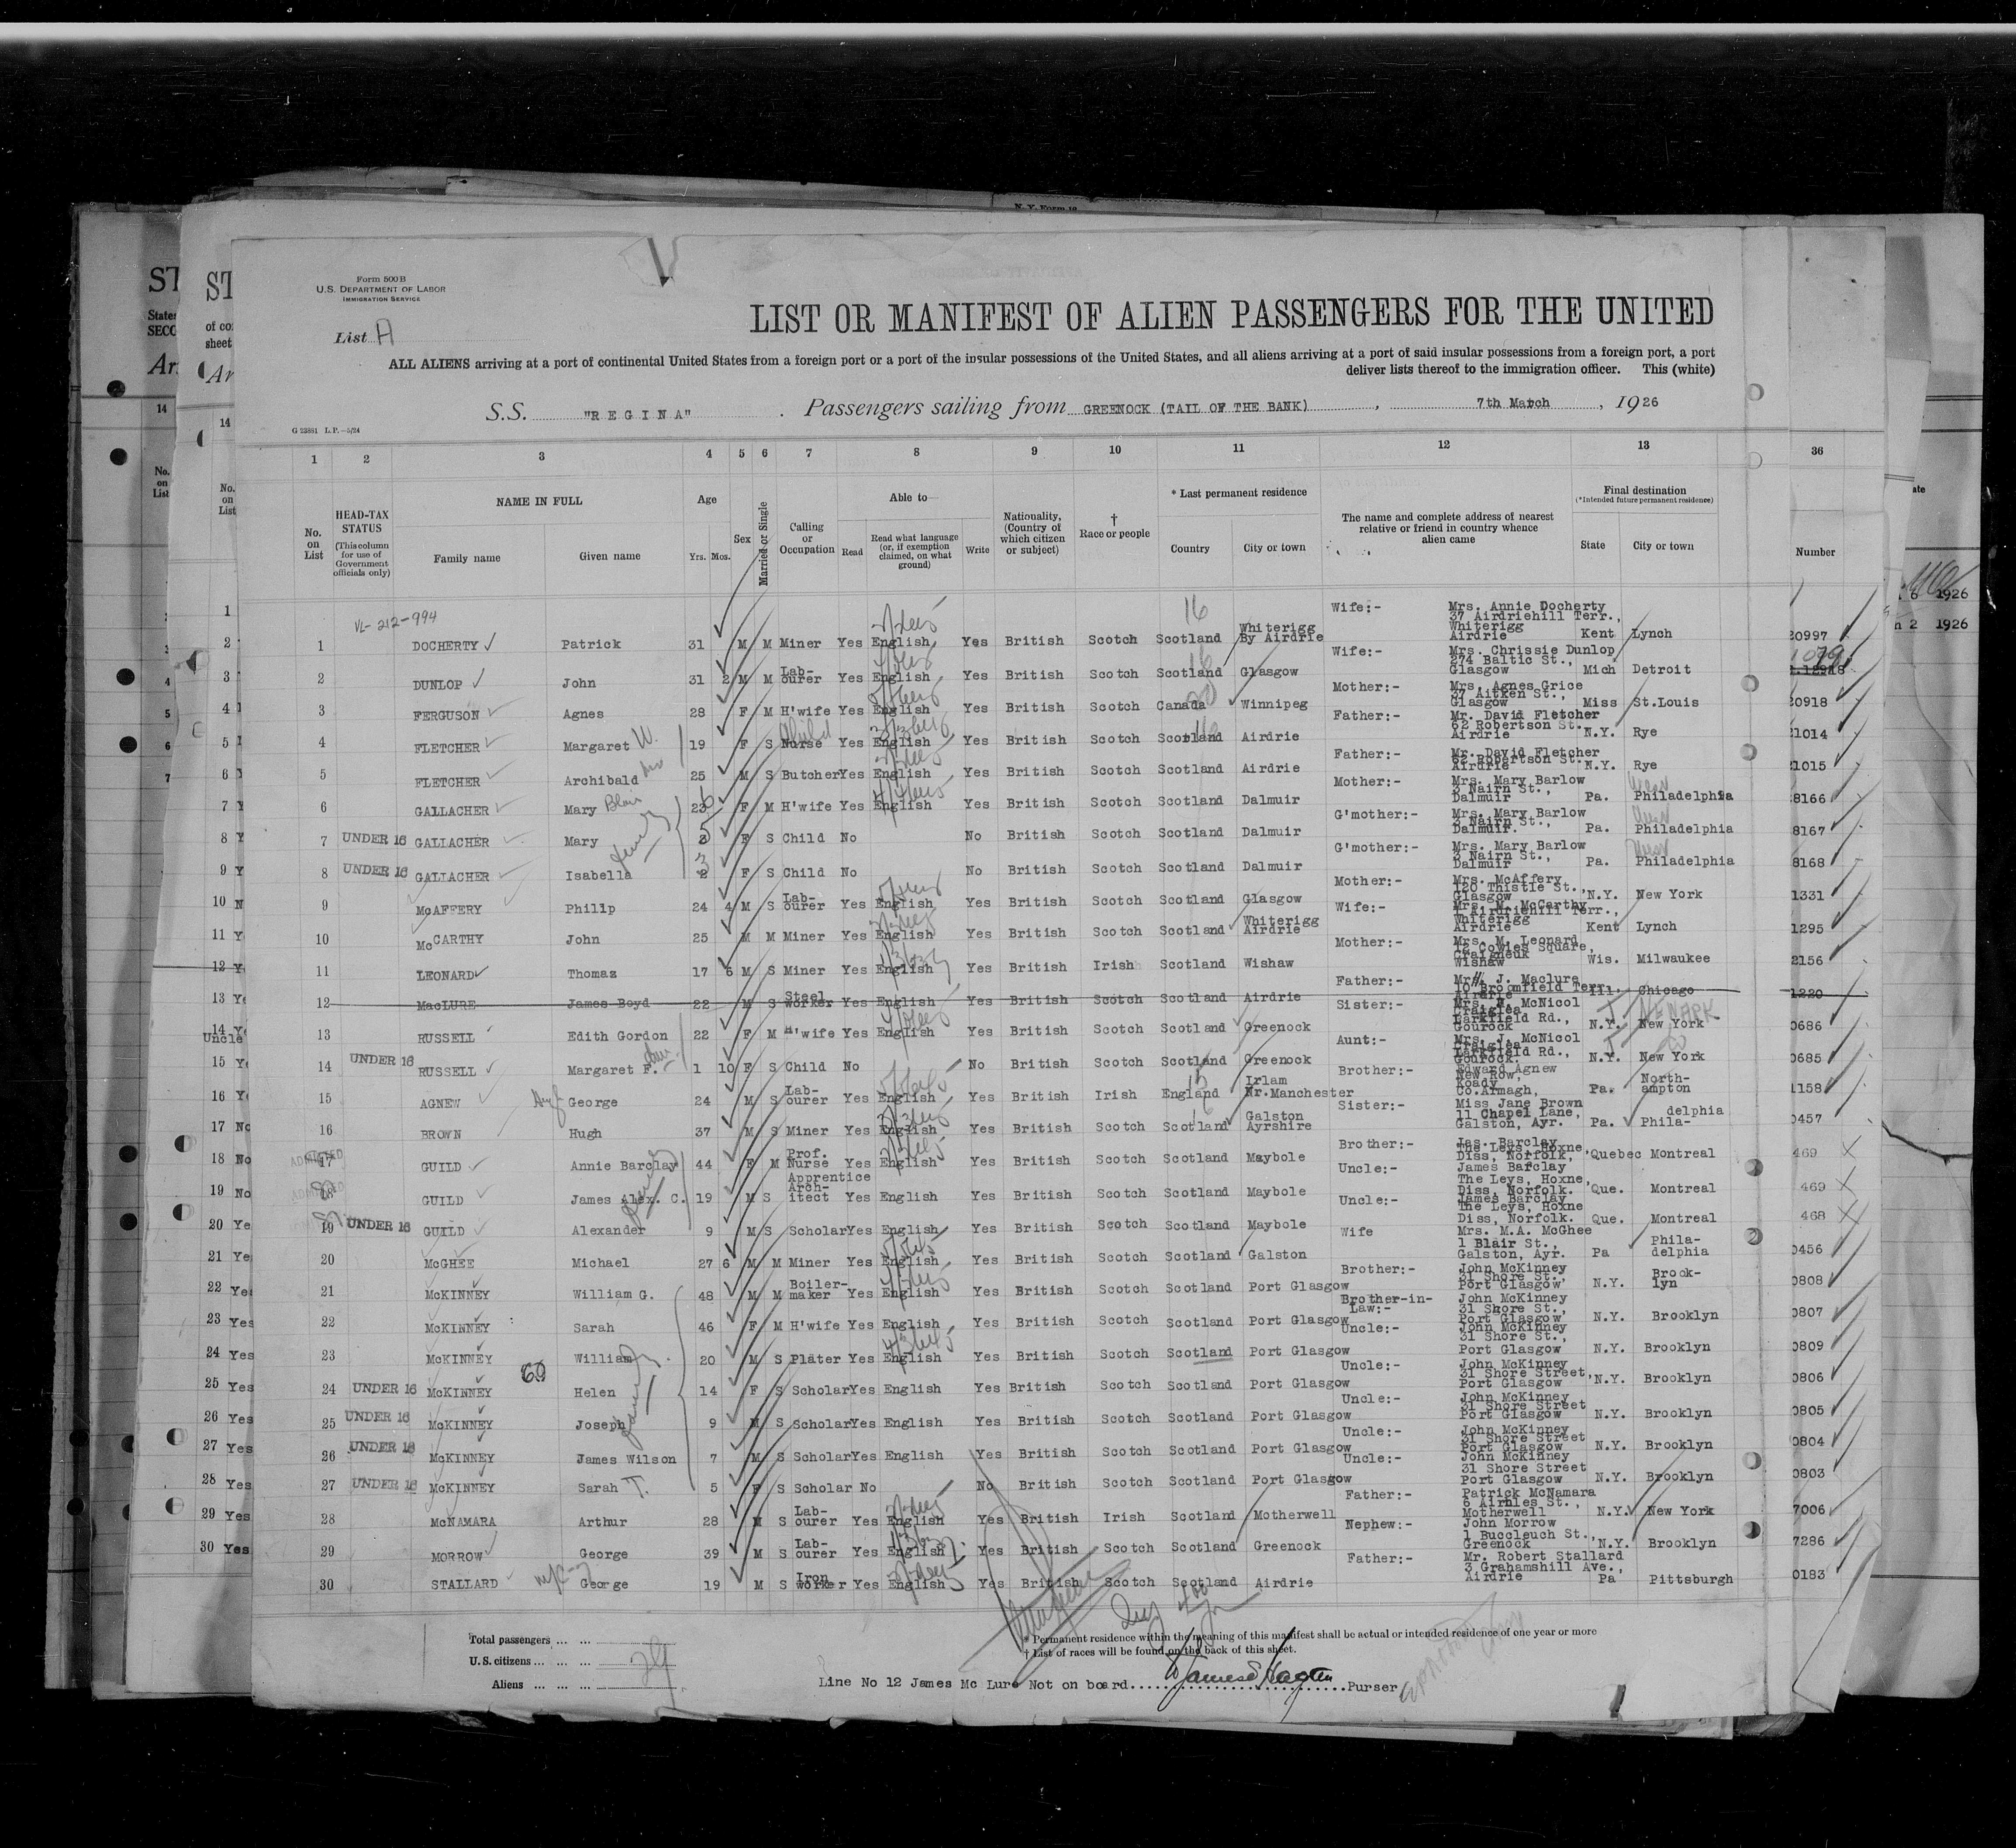 N. Y. Form 16
Form 500 B
U.S. DEPARTMENT OF LABOR
IMMIGRATION SERVICE
List A
LIST OR MANIFEST OF ALIEN PASSENGERS FOR THE UNITED
ALL ALIENS arriving at a port of continental United States from a foreign port or a port of the insular possessions of the United States, and all aliens arriving at a port of said insular possessions from a foreign port, a port
deliver lists thereof to the immigration officer. This (white)
S.S. "REGINA" . Passengers sailing from GREENOCK (TAIL OF THE BANK) , 7th March , 1926
G 23881 L.P.—5/24
1 2 3 4 5 6 7 8 9 10 11 12 13 36
No. on List
HEAD-TAX STATUS (This column for use of Government officials only)
NAME IN FULL
Family name Given name
Age Yrs. Mos.
Sex
Married or Single
Calling or Occupation
Able to—
Read Read what language (or, if exemption claimed, on what ground) Write
Nationality, (Country of which citizen or subject)
† Race or people
* Last permanent residence
Country City or town
The name and complete address of nearest relative or friend in country whence alien came
Final destination
(*Intended future permanent residence)
State City or town
Number
VL-212-994
1 DOCHERTY Patrick 31 M M Miner Yes English Yes British Scotch Scotland Whiterigg By Airdrie Wife:- Mrs. Annie Docherty 37 Airdriehill Terr., Whiterigg Airdrie Kent Lynch 20997
2 DUNLOP John 31 2 M M Lab-ourer Yes English Yes British Scotch Scotland Glasgow Wife:- Mrs. Chrissie Dunlop 274 Baltic St., Glasgow Mich Detroit
3 FERGUSON Agnes 28 F M H'wife Yes English Yes British Scotch Canada Winnipeg Mother:- Mrs. Agnes Grice 37 Aitken St., Glasgow Miss St.Louis 20918
4 FLETCHER Margaret W. 19 F S Nurse Yes English Yes British Scotch Scotland Airdrie Father:- Mr. David Fletcher 62 Robertson St. Airdrie N.Y. Rye 21014
5 FLETCHER Archibald 25 M S Butcher Yes English Yes British Scotch Scotland Airdrie Father:- Mr. David Fletcher 62 Robertson St. Airdrie N.Y. Rye 21015
6 GALLACHER Mary Blair 23 F M H'wife Yes English Yes British Scotch Scotland Dalmuir Mother:- Mrs. Mary Barlow 3 Nairn St., Dalmuir Pa. Philadelphia 8166
7 UNDER 16 GALLACHER Mary F S Child No No British Scotch Scotland Dalmuir G'mother:- Mrs. Mary Barlow 3 Nairn St., Dalmuir. Pa. Philadelphia 8167
8 UNDER 16 GALLACHER Isabella 2 F S Child No No British Scotch Scotland Dalmuir G'mother:- Mrs. Mary Barlow 3 Nairn St., Dalmuir Pa. Philadelphia 8168
9 McAFFERY Philip 24 4 M S Lab-ourer Yes English Yes British Scotch Scotland Glasgow Mother:- Mrs. McAffery 120 Thistle St., Glasgow N.Y. New York 1331
10 McCARTHY John 25 M M Miner Yes English Yes British Scotch Scotland Whiterigg Airdrie Wife:- Mrs. M. McCarthy 1 Airdriehill Terr., Whiterigg Airdrie Kent Lynch 1295
11 LEONARD Thomas 17 6 M S Miner Yes English Yes British Irish Scotland Wishaw Mother:- Mrs. M. Leonard 12 Cowies Square, Craigneuk Wishaw Wis. Milwaukee 2156
12 MacLURE James Boyd 22 M S Steel worker Yes English Yes British Scotch Scotland Airdrie Father:- J. Maclure 10 Broomfield Terr. Airdrie Ill. Chicago 1220
13 RUSSELL Edith Gordon 22 F M H'wife Yes English Yes British Scotch Scotland Greenock Sister:- Mrs. McNicol Craiglea Larkfield Rd., Gourock N.Y. New York NEWARK 0686
14 UNDER 16 RUSSELL Margaret F. 1 10 F S Child No No British Scotch Scotland Greenock Aunt:- Mrs. J. McNicol Craiglea Larkfield Rd., Gourock. N.Y. New York 0685
15 AGNEW George 24 M S Lab-ourer Yes English Yes British Irish England Irlam Nr.Manchester Brother:- Edward Agnew New Row, Koady Co.Armagh, Pa. North-ampton 1158
16 BROWN Hugh 37 M S Miner Yes English Yes British Scotch Scotland Galston Ayrshire Sister:- Miss Jane Brown 11 Chapel Lane, Galston, Ayr. Pa. Phila-delphia 0457
ADMITTED 17 GUILD Annie Barclay 44 F M Prof. Nurse Yes English Yes British Scotch Scotland Maybole Brother:- Jas. Barclay The Leys, Hoxne, Diss, Norfolk, Quebec Montreal 469
18 GUILD James Alex. C. 19 M S Apprentice Arch-itect Yes English Yes British Scotch Scotland Maybole Uncle:- James Barclay The Leys, Hoxne, Diss, Norfolk. Que. Montreal 469
19 UNDER 16 GUILD Alexander 9 M S Scholar Yes English Yes British Scotch Scotland Maybole Uncle:- James Barclay The Leys, Hoxne Diss, Norfolk. Que. Montreal 468
20 McGHEE Michael 27 6 M M Miner Yes English Yes British Scotch Scotland Galston Wife Mrs. M.A. McGhee 1 Blair St., Galston, Ayr. Pa Phila-delphia 0456
21 McKINNEY William G. 48 M M Boiler-maker Yes English Yes British Scotch Scotland Port Glasgow Brother:- John McKinney 31 Shore St., Port Glasgow N.Y. Brook-lyn 0808
22 McKINNEY Sarah 46 F M H'wife Yes English Yes British Scotch Scotland Port Glasgow Brother-in-Law:- John McKinney 31 Shore St., Port Glasgow N.Y. Brooklyn 0807
23 McKINNEY William 20 M S Plater Yes English Yes British Scotch Scotland Port Glasgow Uncle:- John McKinney 31 Shore St., Port Glasgow N.Y. Brooklyn 0809
24 UNDER 16 McKINNEY Helen 14 F S Scholar Yes English Yes British Scotch Scotland Port Glasgow Uncle:- John McKinney 31 Shore Street, Port Glasgow N.Y. Brooklyn 0806
25 UNDER 16 McKINNEY Joseph 9 M S Scholar Yes English Yes British Scotch Scotland Port Glasgow Uncle:- John McKinney 31 Shore Street Port Glasgow N.Y. Brooklyn 0805
26 UNDER 16 McKINNEY James Wilson 7 M S Scholar Yes English Yes British Scotch Scotland Port Glasgow Uncle:- John McKinney 31 Shore Street Port Glasgow N.Y. Brooklyn 0804
27 UNDER 16 McKINNEY Sarah T. 5 F S Scholar No No British Scotch Scotland Port Glasgow Uncle:- John McKinney 31 Shore Street Port Glasgow N.Y. Brooklyn 0803
28 McNAMARA Arthur 28 M S Lab-ourer Yes English Yes British Irish Scotland Motherwell Father:- Patrick McNamara 6 Airbles St., Motherwell N.Y. New York 7006
29 MORROW George 39 M S Lab-ourer Yes English Yes British Scotch Scotland Greenock Nephew:- John Morrow 1 Buccleuch St., Greenock N.Y. Brooklyn 7286
30 STALLARD George 19 M S Iron worker Yes English Yes British Scotch Scotland Airdrie Father:- Mr. Robert Stallard 3 Grahamshill Ave., Airdrie Pa Pittsburgh 0183
Total passengers ... ...
U.S. citizens ... ... ... 29
Aliens ... ... ...
* Permanent residence within the meaning of this manifest shall be actual or intended residence of one year or more
† List of races will be found on the back of this sheet.
Line No 12 James Mc Lure Not on board. Purser